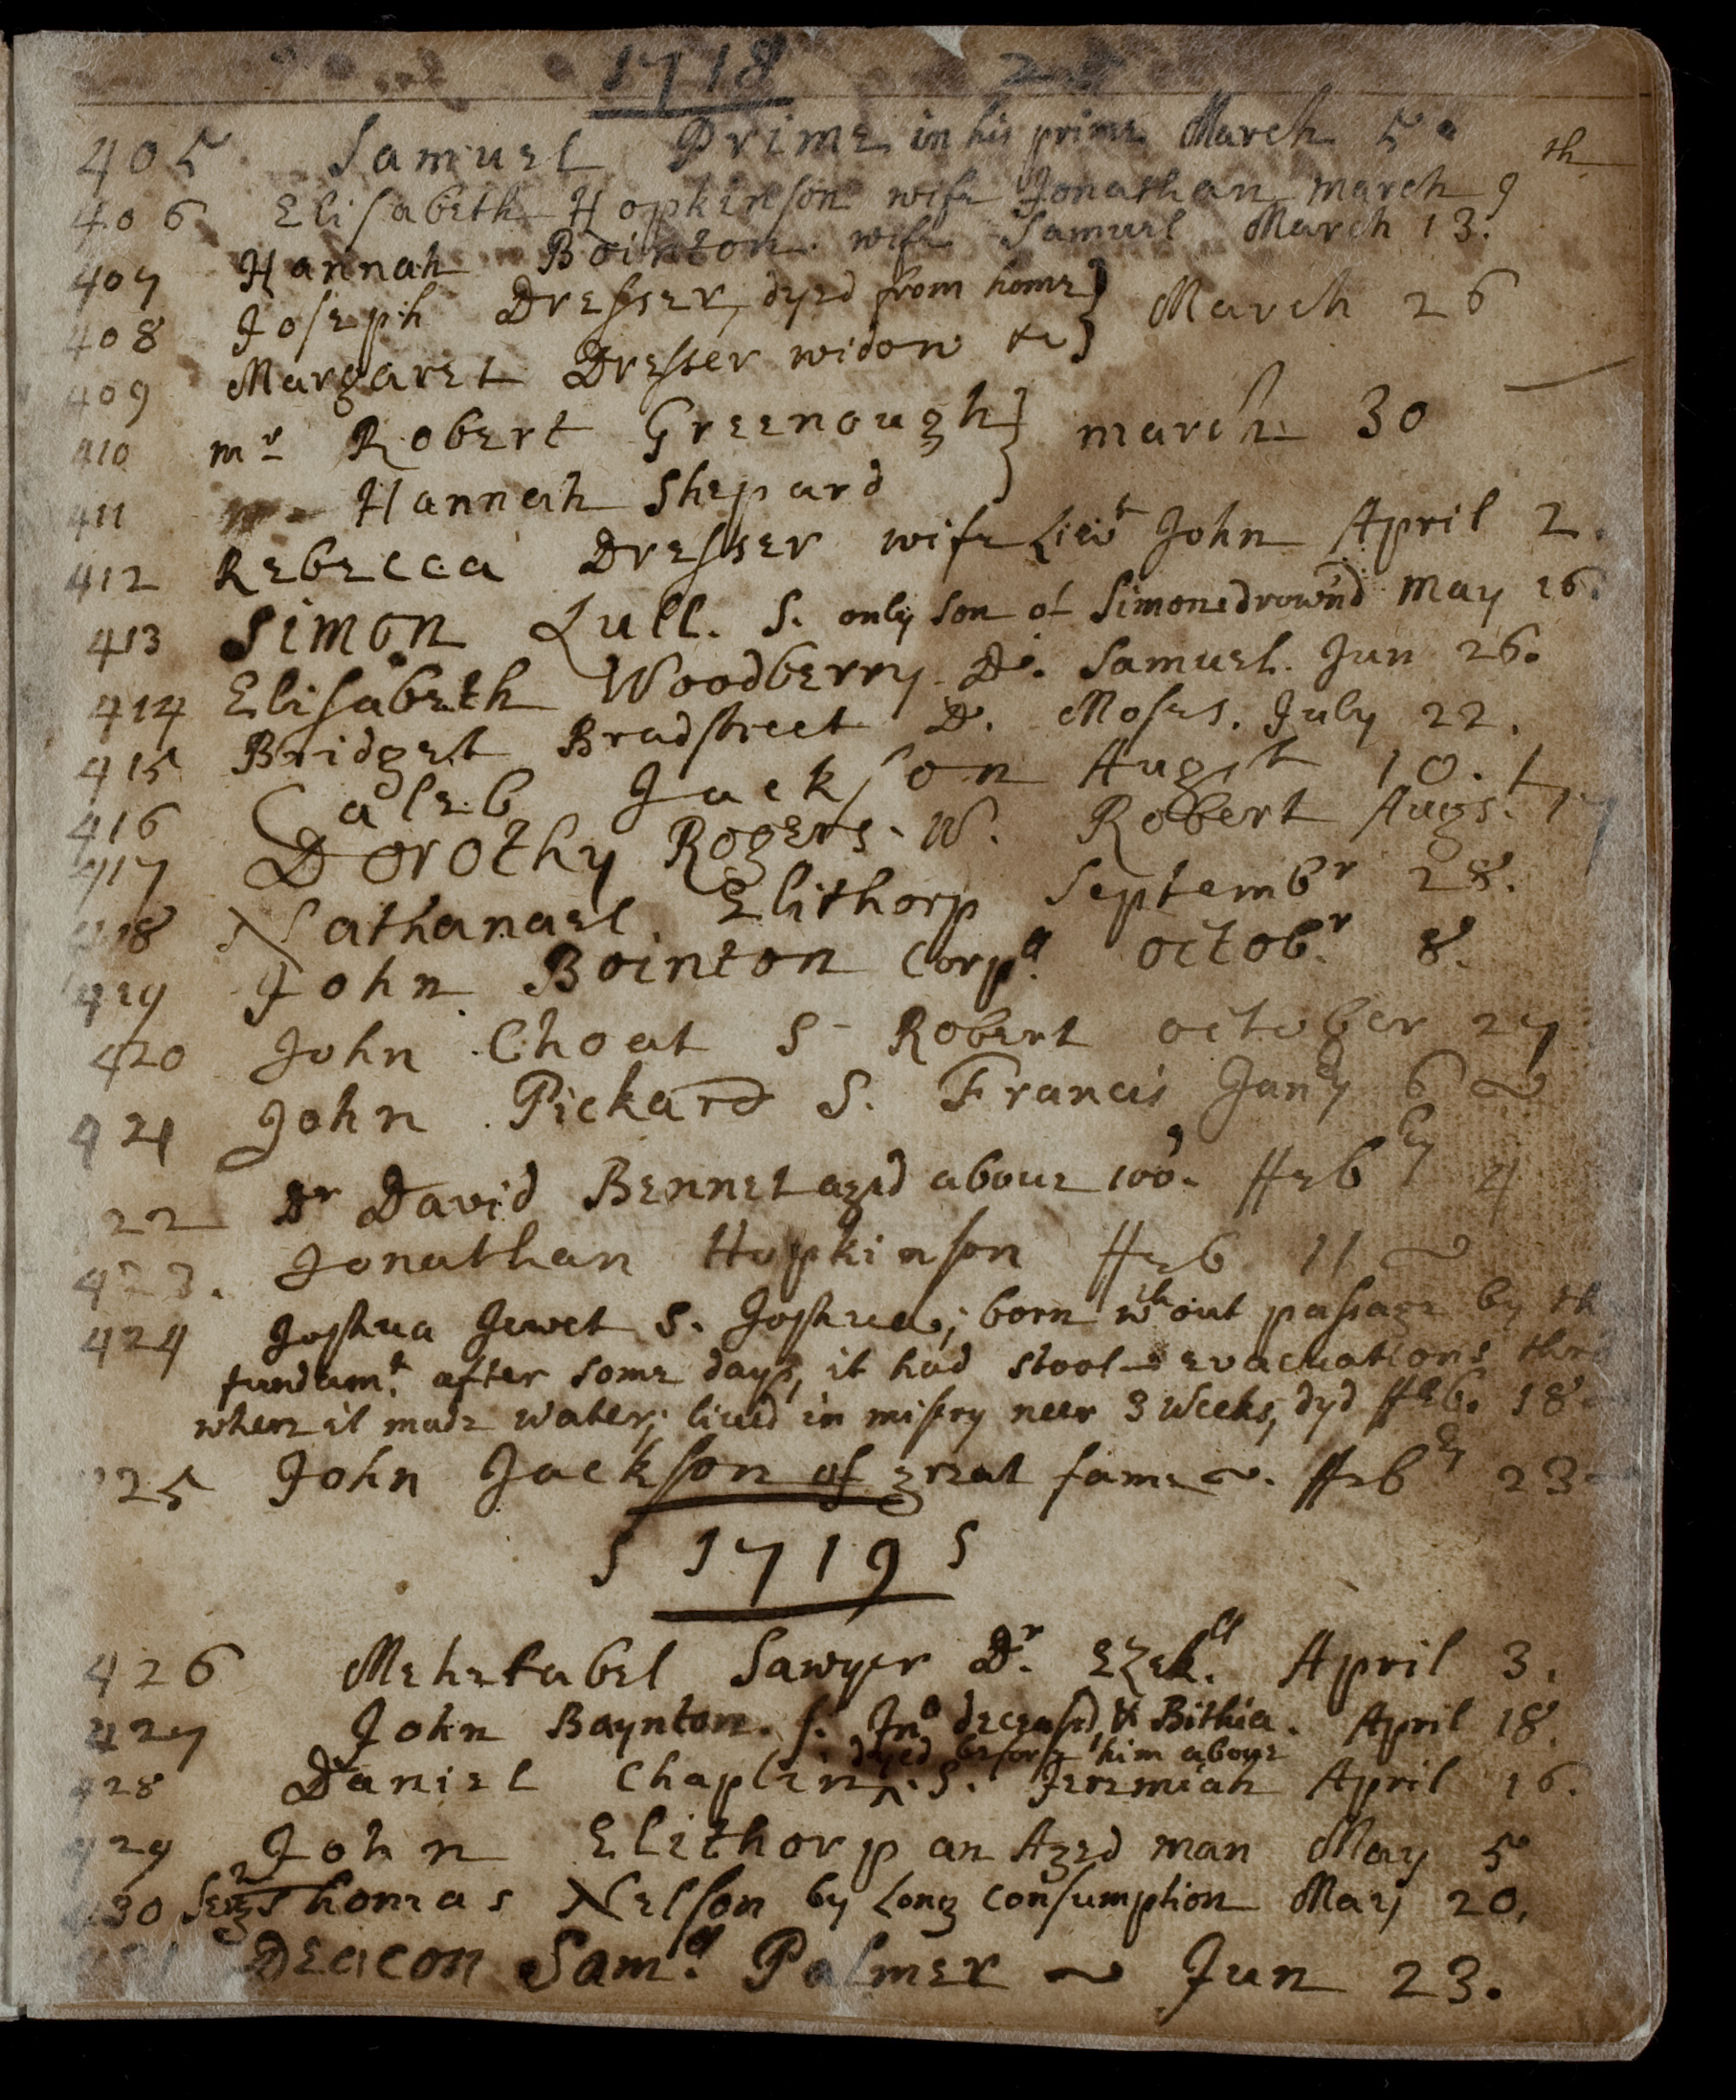 1718
405 Samuel Prime in his prime March 5.
406 Elisabeth Hopkinson wife Jonathan march 9th
407 Hannah Bointon wife Samuel March 13.
408 Joseph Dresser, dyed from home } March 26
409 Margaret Dresser widow &c }
410 mr Robert Greenough } march 30
411 Hannah Shepard
412 Rebecca Dresser wife Lieut John April 2.
413 Simon Lull. S. only son of Simon drown'd May 16.
414 Elisabeth Woodberry Dr. Samuel. Jun 26.
415 Bridget Bradstreet D. Moses. July 22.
416 Caleb Jackson Augst 10.
417 Dorothy Rogers. W. Robert Augst. 17
418 Nathanael Elithorp Septembr 28.
419 John Bointon Corpll. Octobr. 8.
420 John Choat S Robert October 27
421 John Pickard S. Francis Janry 6
22 Dr David Bennet aged above 100. ffebry 4
423. Jonathan Hopkinson ffeb 11
424 Joshua Jewet S. Joshua; born wthout passage by th
fundamt. after some days, it had stool evacuations thro
where it made water; lived in misery neer 3 Weeks, dyd ffeb. 18.
25 John Jackson of great fame. ffebry 23
1719
426 Mehetabel Sawyer Dr. Ezekll. April 3.
427 John Baynton. s. Jno deceased, & Bithia. April 18.
dyed before him above
428 Daniel Chaplin ^. S. Jeremiah April 16.
429 John Elithorp an Aged man May 5
430 Sergt Thomas Nelson by Long Consumption May 20.
Deacon Samll. Palmer Jun 23.